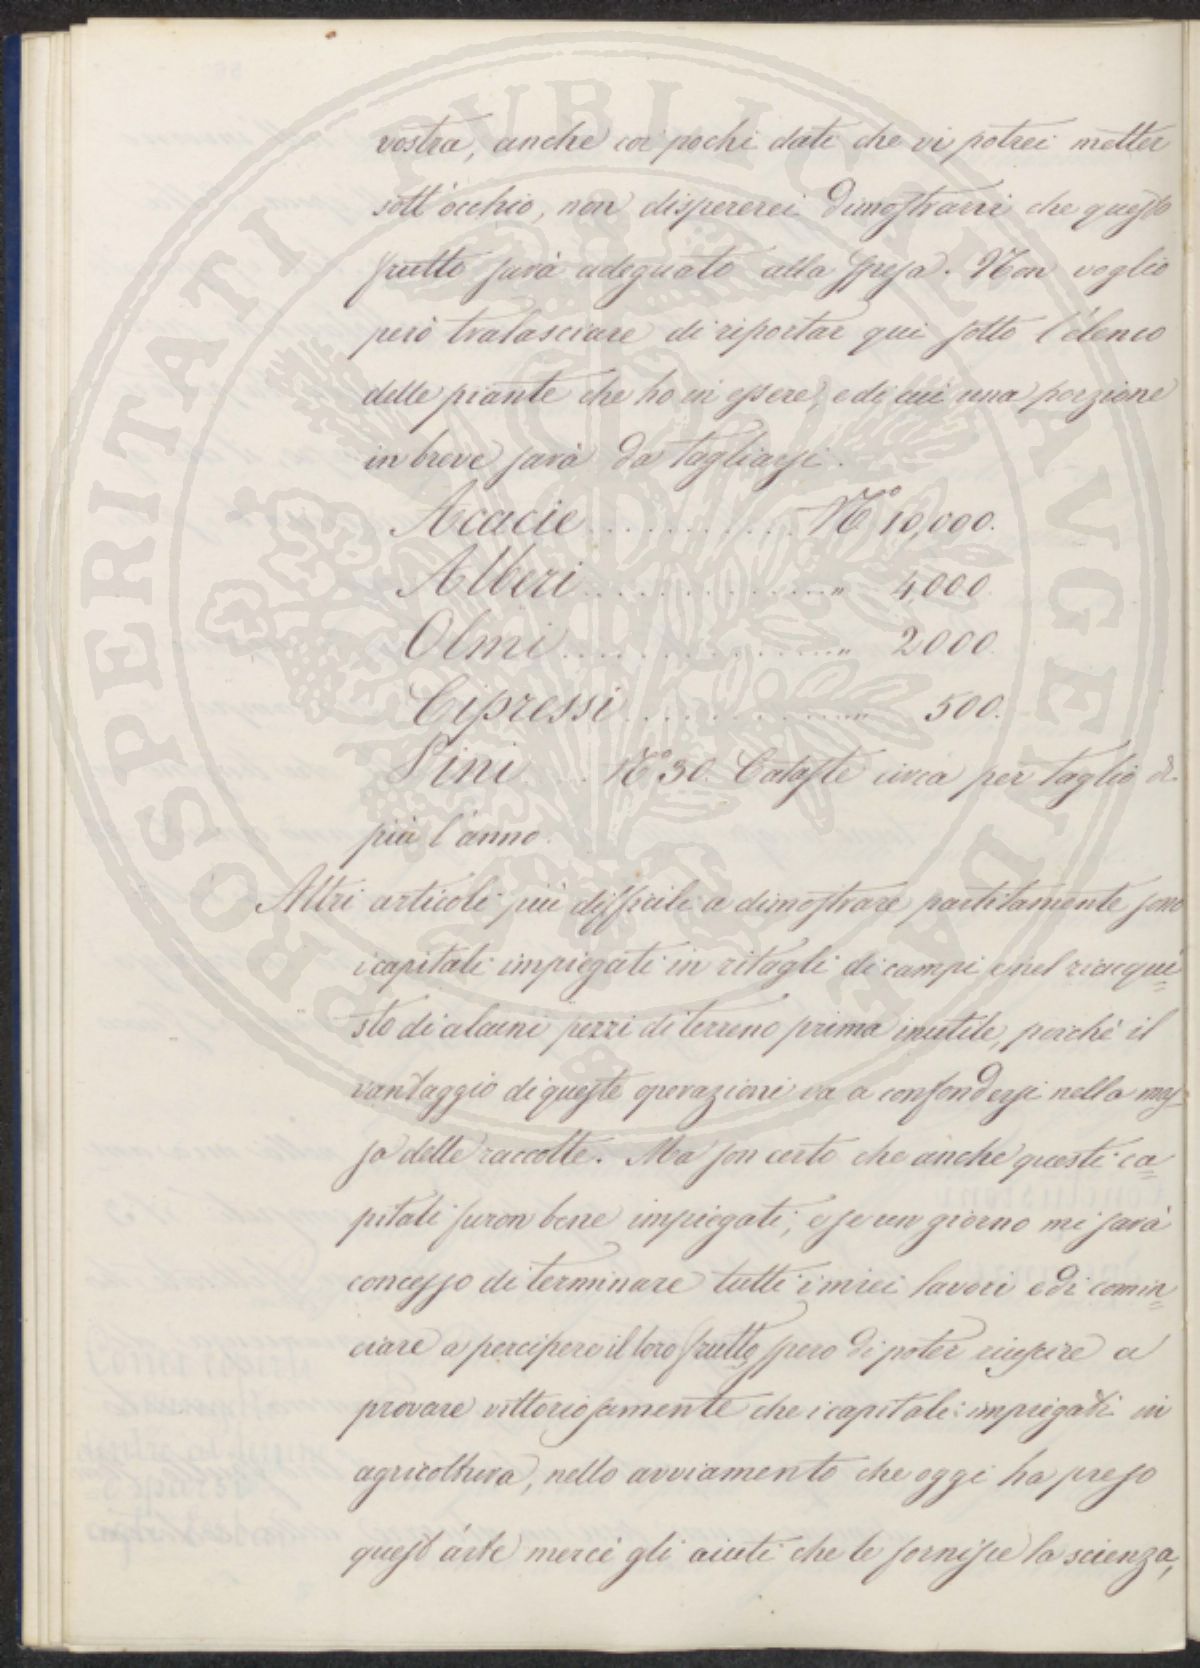 vostra, anche coi pochi dati che vi potrei metter
sott'occhio, non dispererei dimostrarvi che questo
frutto sarà adeguato alla spesa. Non voglio
però tralasciare di riportar qui sotto l'elenco
delle piante che ho in essere, e di cui una porzione
in breve sarà da tagliarsi.
Acacie .......... N.º 10,000.
Alberi ............ " 4,000
Olmi ............. " 2000.
Cipressi ............ " 500.
Pini .... N.º 30. Cataste circa per taglio di
più l'anno.
Altri articoli più difficili a dimostrare partitamente sono
i capitali impiegati in ritagli di campi e nel riacqui=
sto di alcuni pezzi di terreno prima inutile, perchè il
vantaggio di queste operazioni va a confondersi nella mas=
sa delle raccolte. Ma son certo che anche questi ca=
pitali furon bene impiegati; e se un giorno mi sarà
concesso di terminare tutti i miei lavori e di comin=
ciare a percipere il loro frutto spero di poter riuscire a
provare vittoriosamente che i capitali impiegati in
agricoltura, nello avviamento che oggi ha preso
quest'arte mercè gli aiuti che le fornisce la scienza,
PROSPERITATI PUBLICAE AUGENDAE